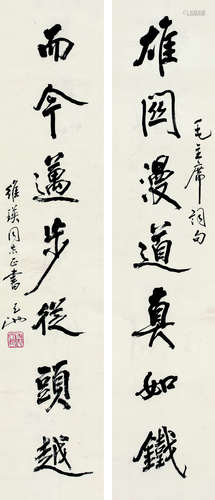 雄關漫道真如鐵
毛主席詞句
而今邁步從頭越
維瑛同志正書